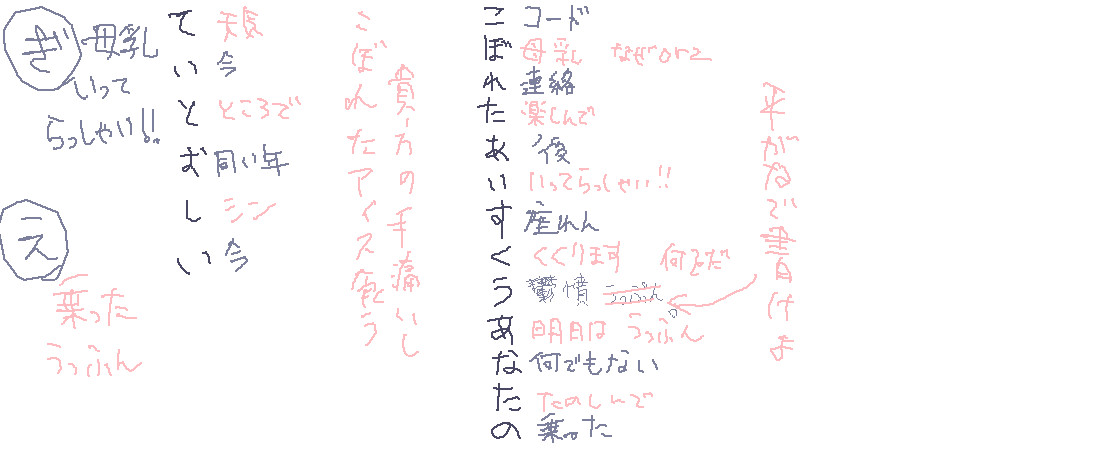 ぎ 母乳
いって
らっしゃい!!
え
乗った
うっふん
ていとおしい
天辰
今
ところで
同い年
シン
今
こぼれたアイス食う
貴方の手痛いし
こぼれたあいすくうあなたの
コード
母乳 なぜorz
連絡
楽しんで
後
いってらっしゃい!!
産れん
くくります 何るだ
鬱憤 うっぷん
明日は うっふん
何でもない
たのしんで
乗った
平がなで書けよ